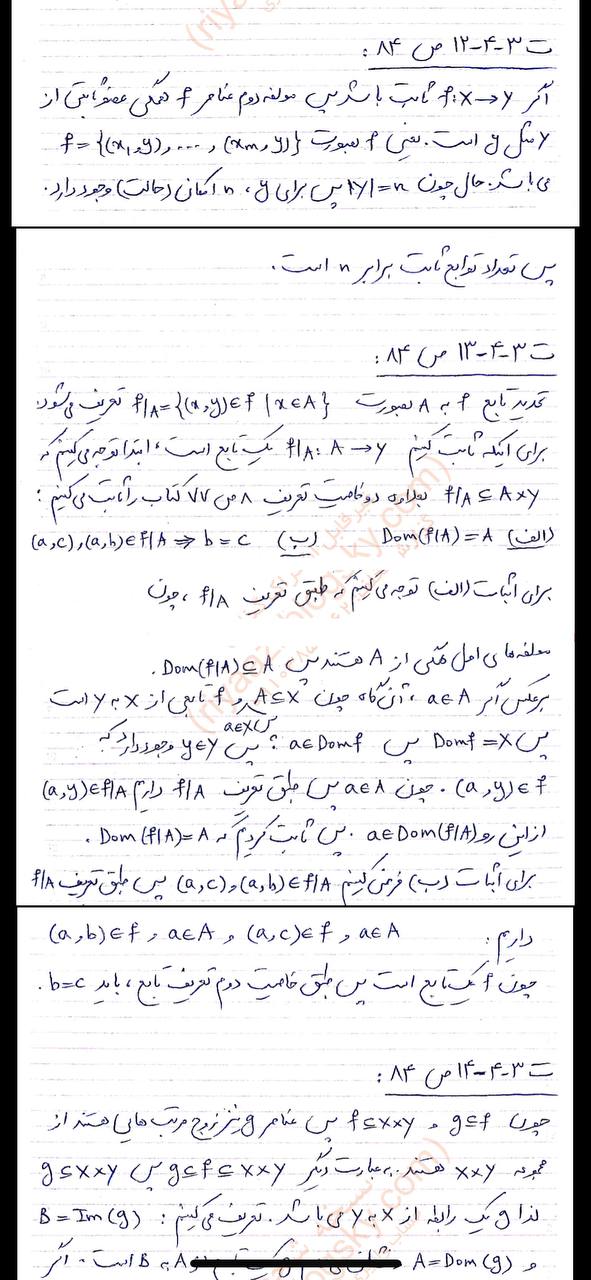 ت ۳-۴-۱۲ ص ۸۴ :
اگر f:X→Y ثابت باشد پس مولفه دوم عناصر f همگی عضو ثابتی از
Y مثل y است. یعنی f بصورت f={(x₁,y),...,(xₘ,y)}
می باشد. حال چون |Y|=n پس برای y، n امکان (حالت) وجود دارد.
پس تعداد توابع ثابت برابر n است.
ت ۳-۴-۱۳ ص ۸۴ :
تحدید تابع f به A بصورت f|A={(x,y)∈f | x∈A} تعریف می شود.
برای اینکه ثابت کنیم f|A: A→Y یک تابع است، ابتدا توجه می کنیم که
f|A ⊆ A×Y بعلاوه دو خاصیت تعریف ۸ ص ۷۷ کتاب را ثابت می کنیم :
(الف) Dom(f|A)=A (ب) (a,c),(a,b)∈f|A ⇒ b=c
برای اثبات (الف) توجه می کنیم که طبق تعریف f|A، چون
مولفه های اول همگی از A هستند پس Dom(f|A)⊆A.
برعکس اگر a∈A، آن گاه چون A⊆X پس a∈X و f تابعی از X به Y است
پس Domf=X پس a∈Domf؛ پس y∈Y وجود دارد که
(a,y)∈f. چون a∈A پس طبق تعریف f|A داریم (a,y)∈f|A
از این رو a∈Dom(f|A). پس ثابت کردیم که Dom(f|A)=A.
برای اثبات (ب) فرض کنیم (a,b)∈f|A و (a,c) پس طبق تعریف f|A
داریم: a∈A و (a,c)∈f و a∈A و (a,b)∈f
چون f یک تابع است پس طبق خاصیت دوم تعریف تابع، باید b=c.
ت ۳-۴-۱۴ ص ۸۴ :
چون g⊆f و f⊆X×Y پس عناصر g نیز زوج مرتب هایی هستند از
مجموعه X×Y هستند. به عبارت دیگر g⊆f⊆X×Y پس g⊆X×Y
لذا g یک رابطه از X به Y می باشد. تعریف می کنیم: B=Im(g)
و A=Dom(g) A به B است. اگر